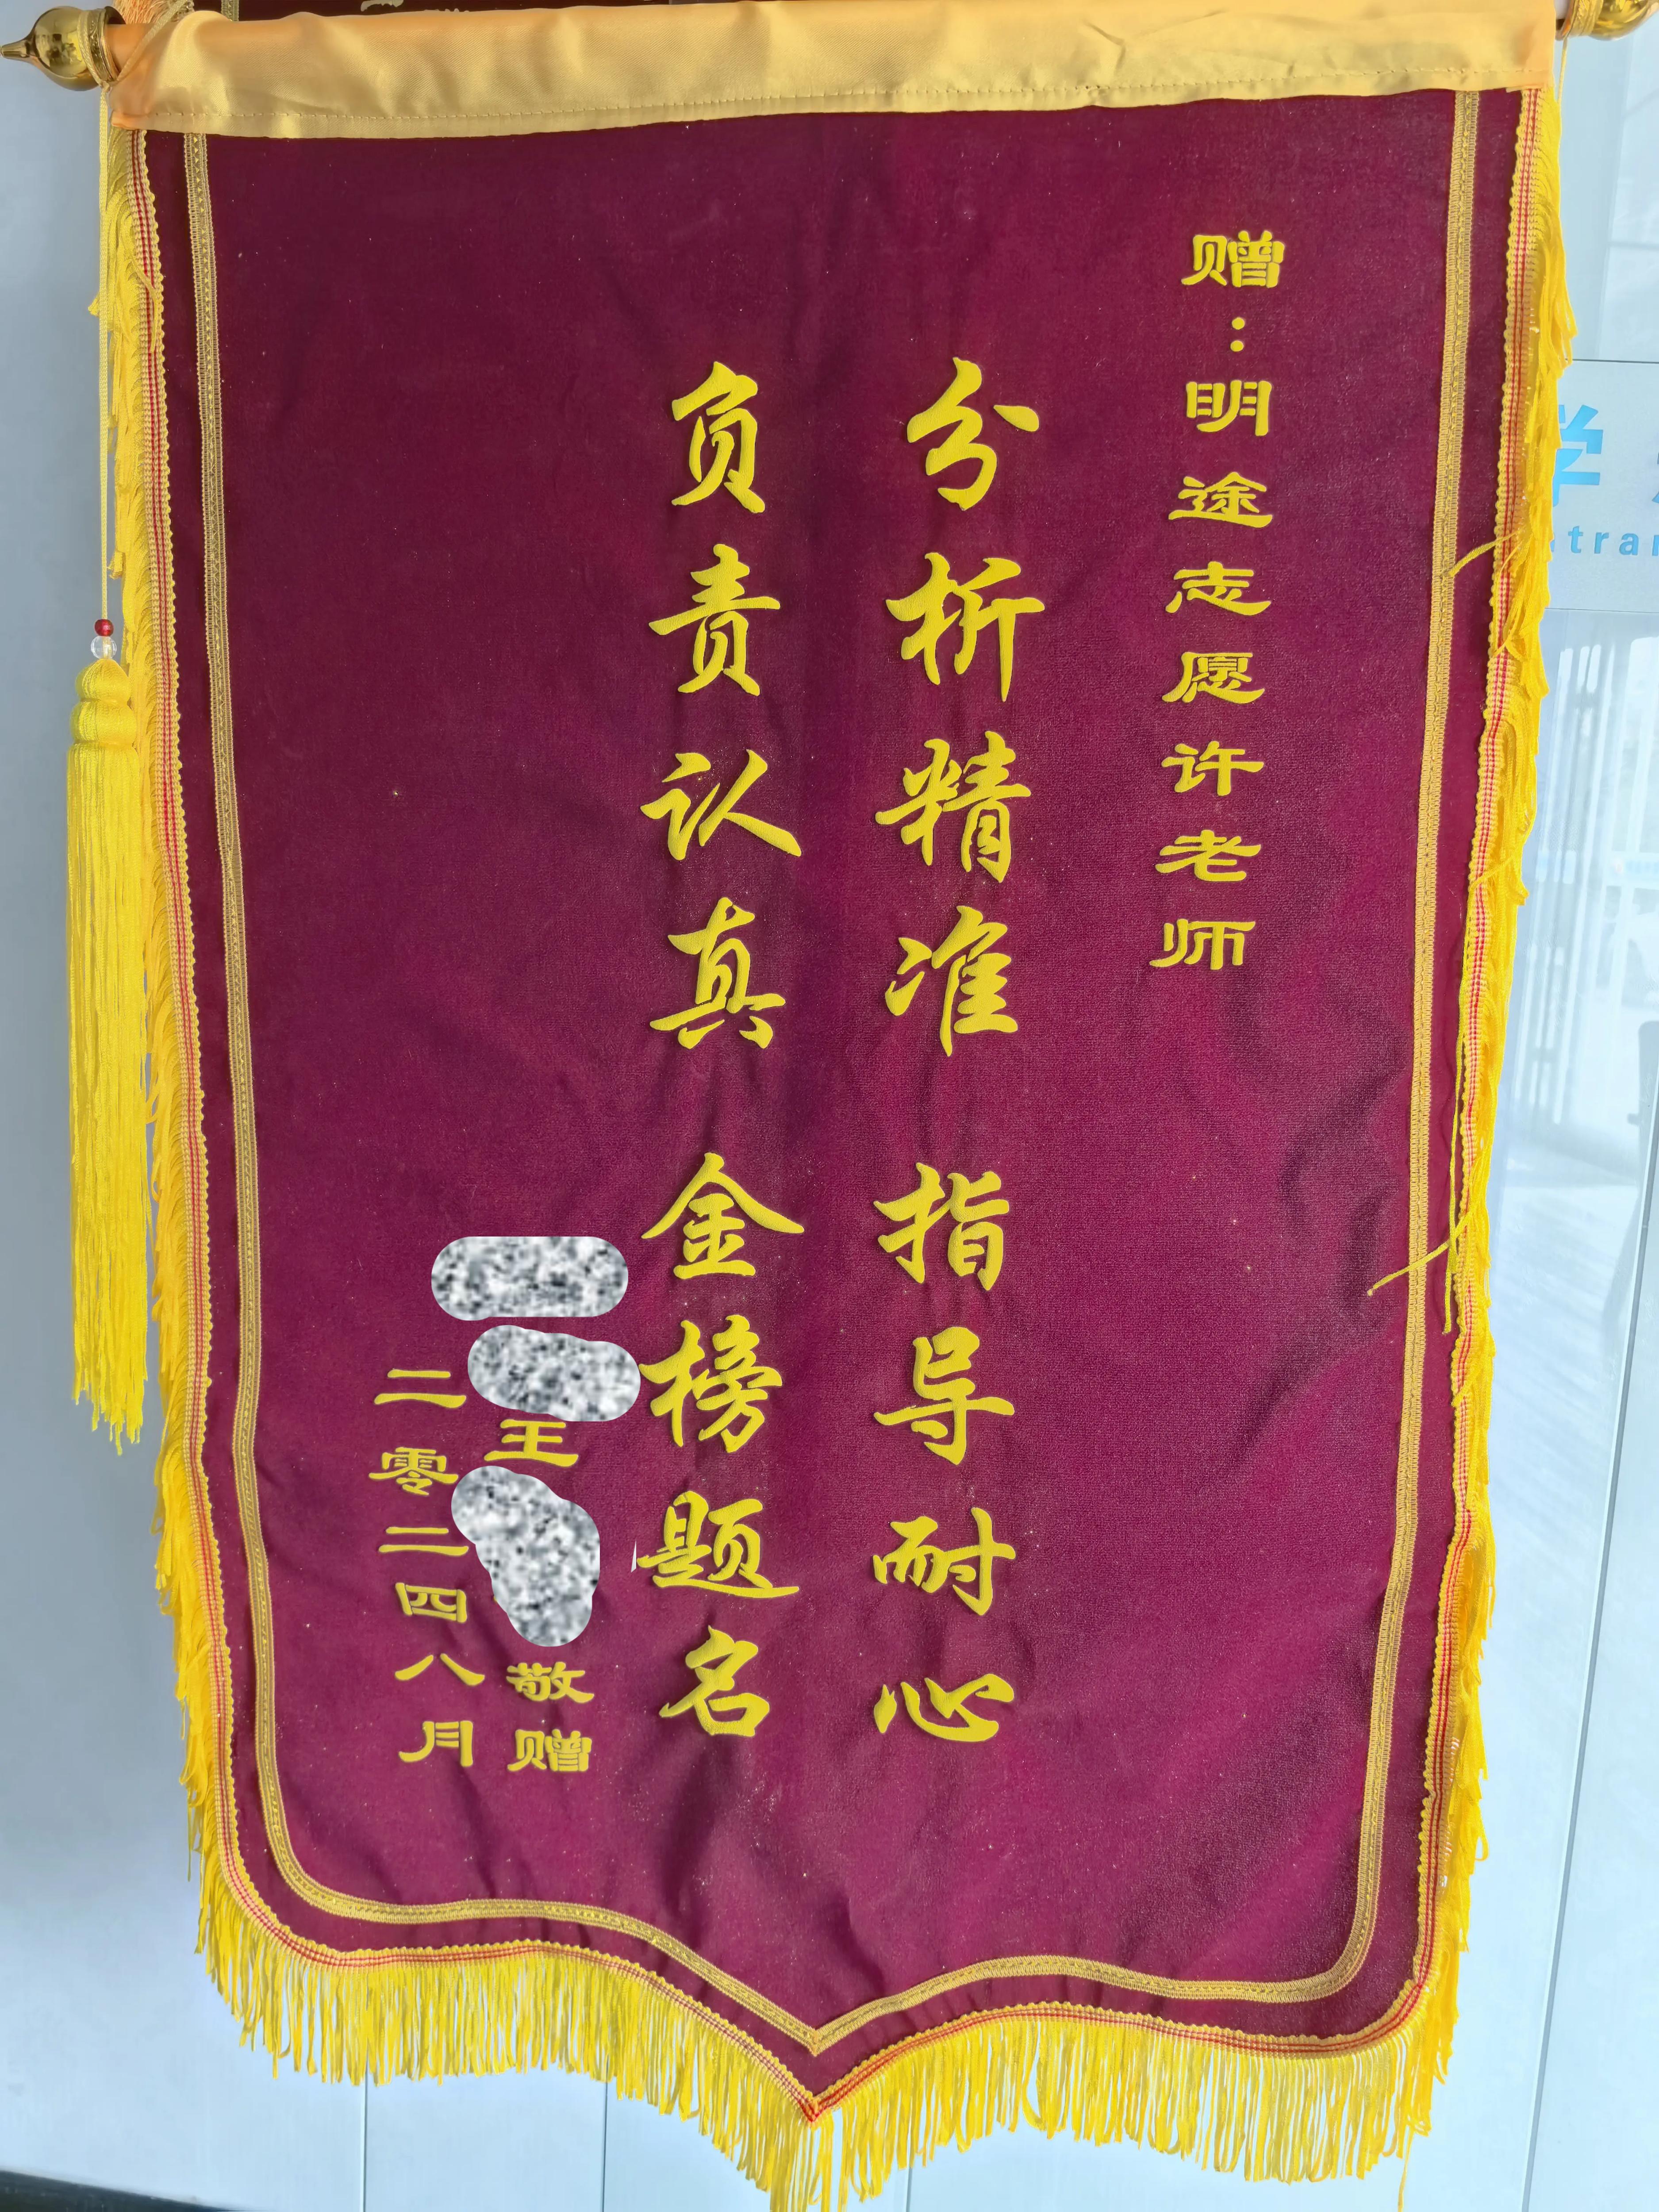 赠：明途志愿许老师
分析精准 指导耐心
负责认真 金榜题名
王 敬赠
二零二四八月
学